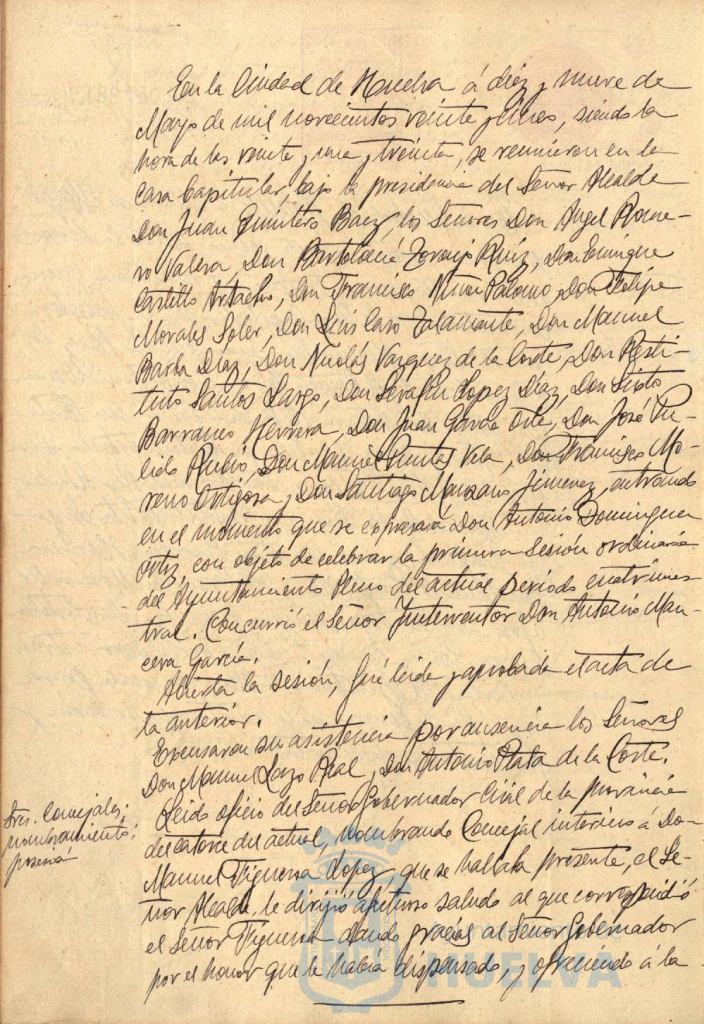 En la Ciudad de Huelva á diez y nueve de
Mayo de mil novecientos veinte y cinco, siendo la
hora de las veinte y una y treinta, se reunieron en la
Casa Capitular, bajo la presidencia del Señor Alcalde
Don Juan Quintero Baez, los Señores Don Angel Rome-
ro Valera, Don Bartolomé Toraijo Ruiz, Don Enrique
Castillo Artacho, Don Francisco Palomo, Don Felipe
Morales Soler, Don Luis Caso Talamante, Don Manuel
Barba Diaz, Don Nicolás Vazquez de la Corte, Don Resti-
tuto Santos Largo, Don Serafin Lopez Diaz, Don Sixto
Barranco Herrera, Don Juan Garcia Orta, Don José Pu-
lido Rubio, Don Manuel Vela, Don Francisco Mo-
reno Ortigosa y Don Santiago Manzano Jimenez, entrando
en el momento que se expresará Don Antonio Dominguez
Ortiz, con objeto de celebrar la primera sesión ordinaria
del Ayuntamiento Pleno del actual periodo cuatrimes-
tral. Concurrió el Señor Interventor Don Antonio Man-
cera Garcia.
Abierta la sesión, fué leida y aprobada el acta de
la anterior.
Excusaron su asistencia por ausencia los Señores
Don Manuel Lazo Real, Don Antonio Plata de la Corte.
Leido oficio del Señor Gobernador Civil de la provincia
del catorce del actual, nombrando Concejal interino á Don
Manuel Figueroa Lopez, que se hallaba presente, el Se-
ñor Alcalde, le dirijió afectuoso saludo al que correspondió
el Señor Figueroa dando gracias al Señor Gobernador
por el honor que le habia dispensado, y ofreciendo á la
Sres. Concejales;
nombramiento;
posesn
HUELVA